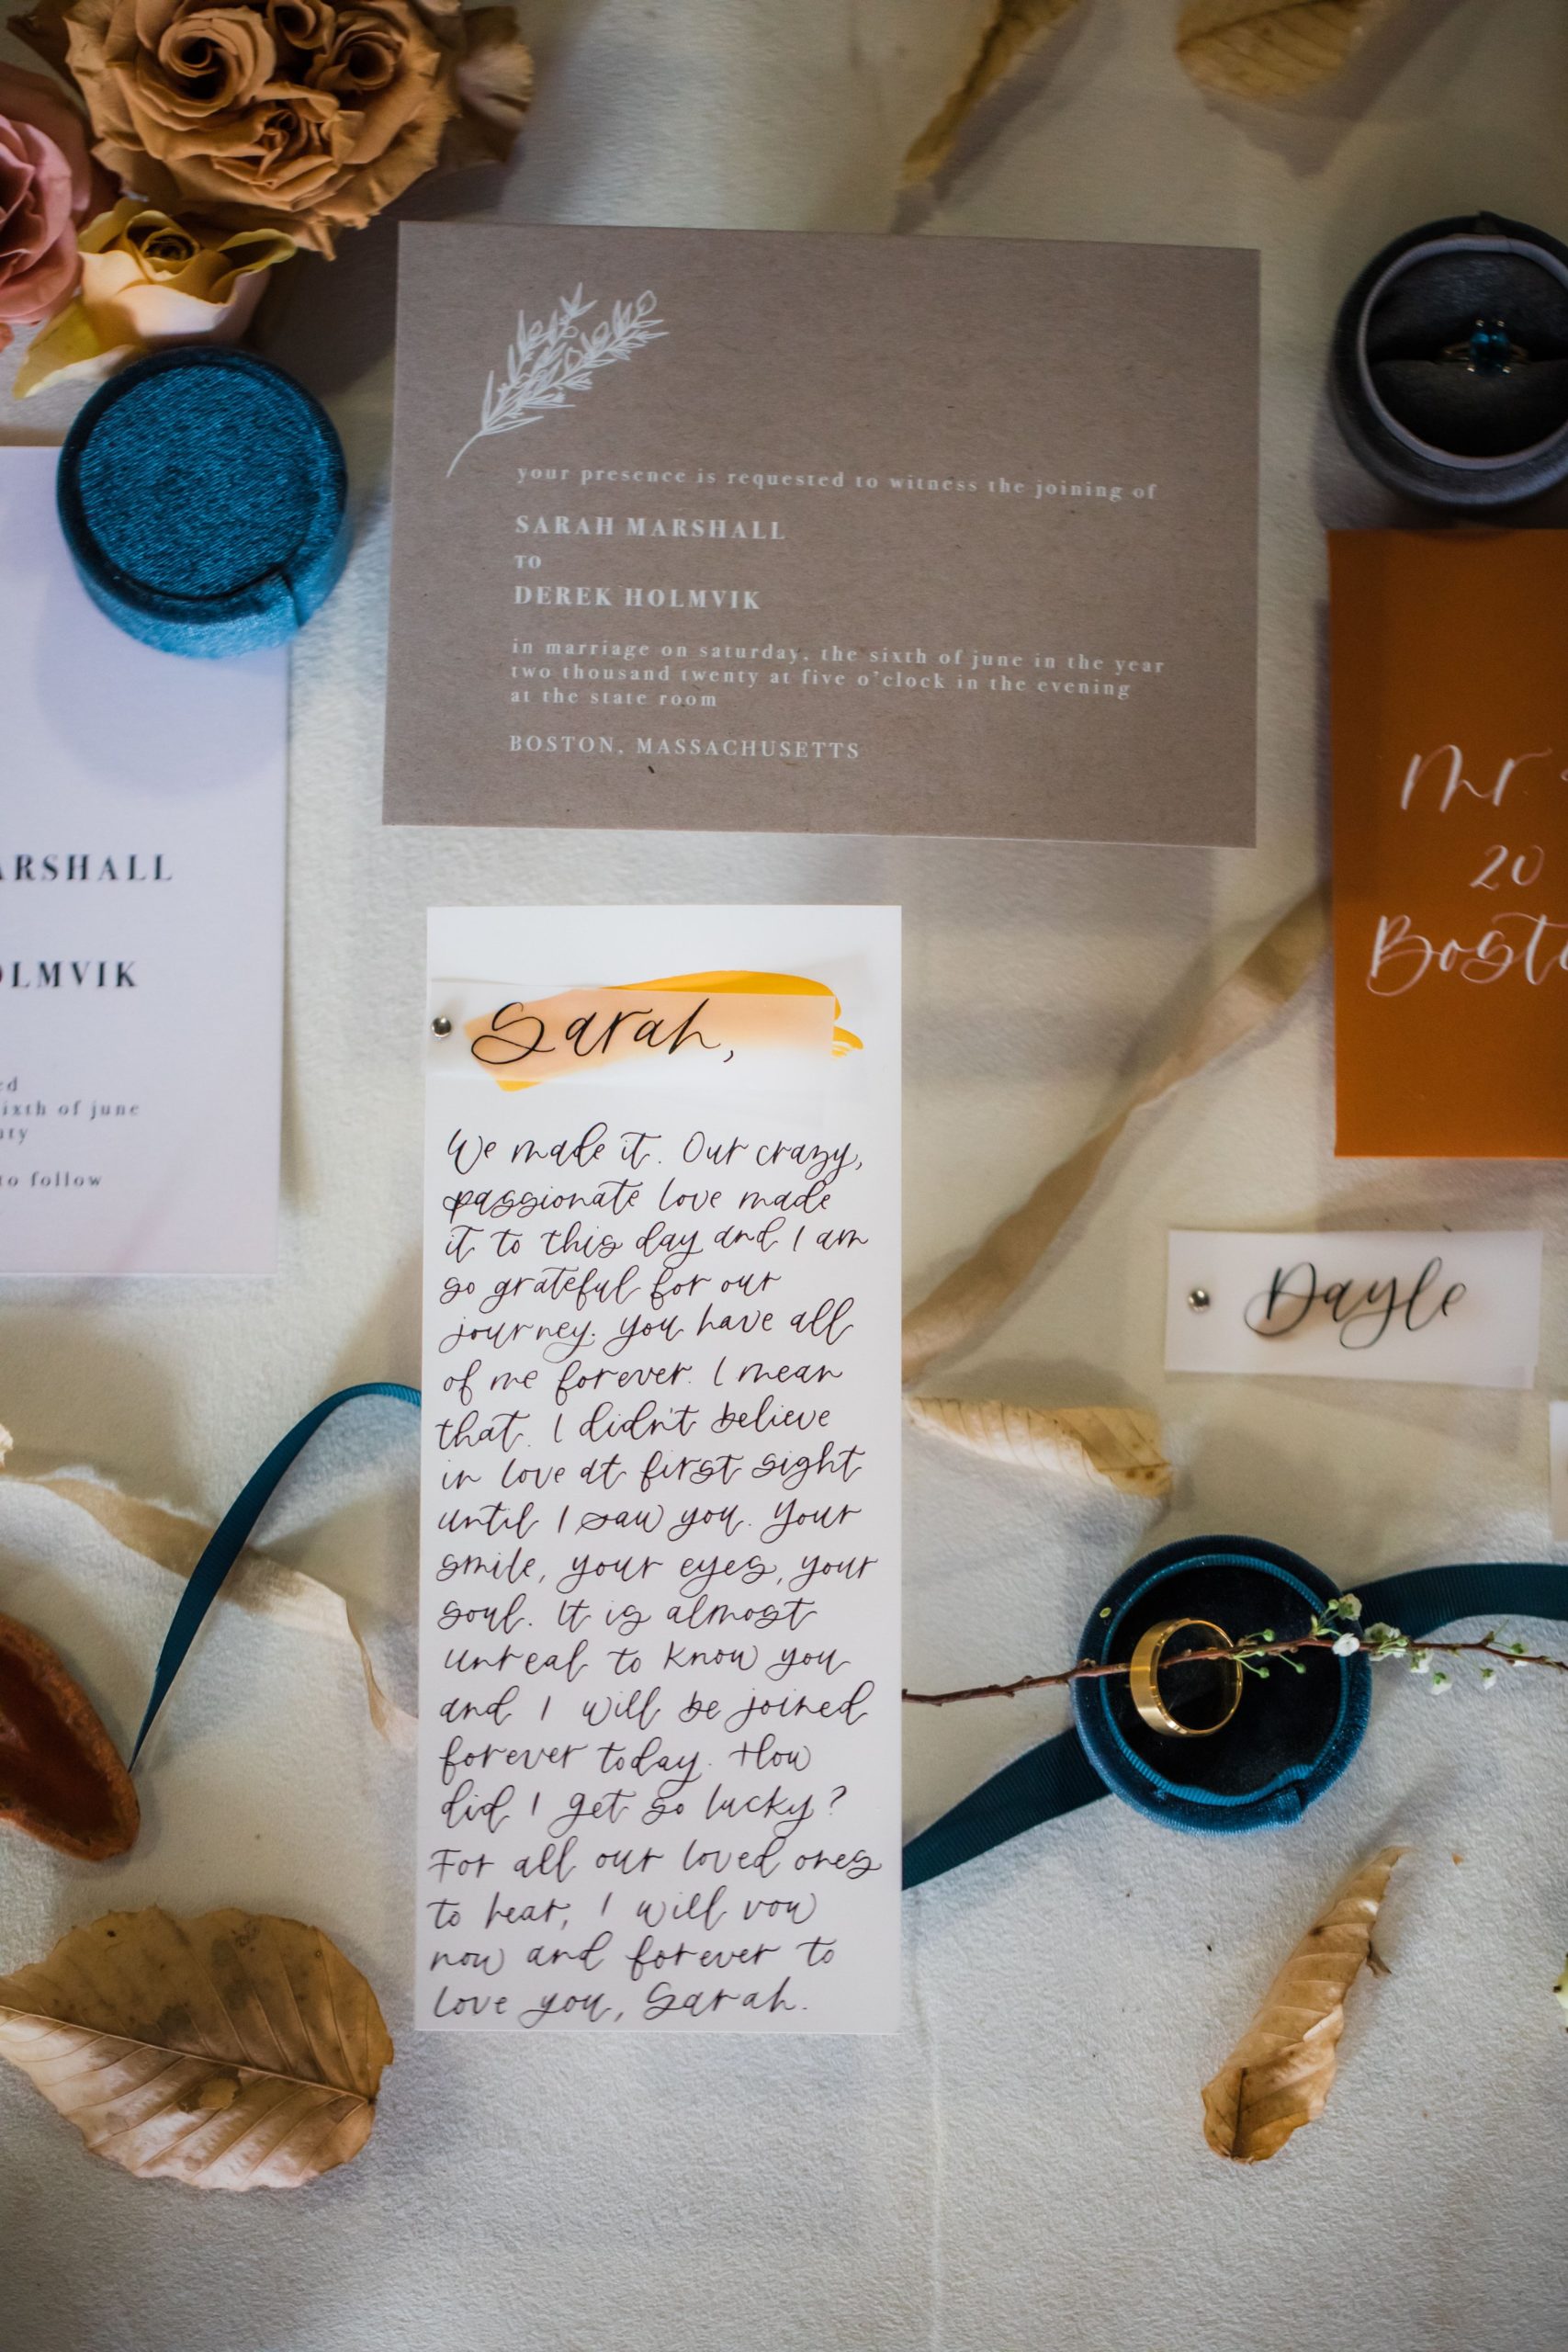 your presence is requested to witness the joining of
SARAH MARSHALL
TO
DEREK HOLMVIK
in marriage on saturday, the sixth of june in the year
two thousand twenty at five o'clock in the evening
at the state room
BOSTON, MASSACHUSETTS
ARSHALL
OLMVIK
ed
ixth of june
nty
to follow
Sarah,
We made it. Our crazy,
passionate love made
it to this day and I am
so grateful for our
journey. You have all
of me forever. I mean
that. I didn't believe
in love at first sight
until I saw you. Your
smile, your eyes, your
soul. It is almost
unreal to know you
and I will be joined
forever today. How
did I get so lucky?
For all our loved ones
to hear, I will vow
now and forever to
love you, Sarah.
Mr
20
Bosto
Dayle